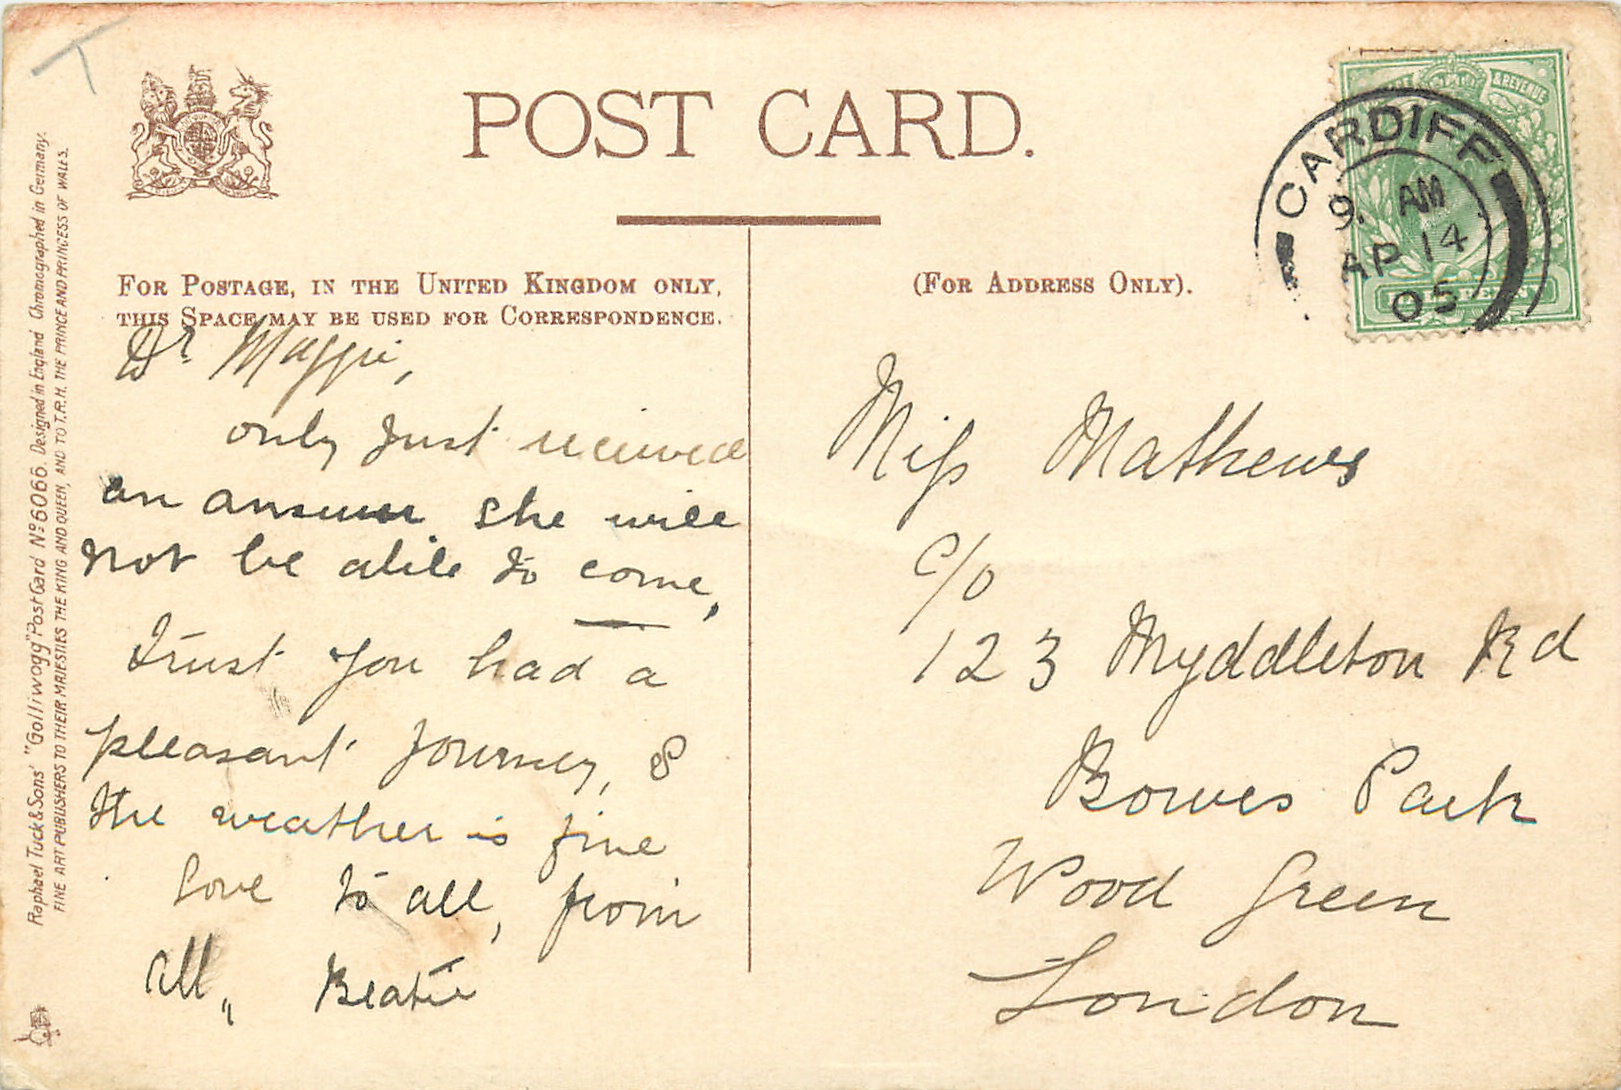 POST CARD.
FOR POSTAGE, IN THE UNITED KINGDOM ONLY,
THIS SPACE MAY BE USED FOR CORRESPONDENCE.
(FOR ADDRESS ONLY).
Dr Maggie,
only just received
an answer she will
not be able to come,
Trust you had a
pleasant journey, &
the weather is fine
love to all, from
all,, Beatie
Miss Mathews
c/o
123 Myddleton Rd
Bowes Park
Wood Green
London
CARDIFF
9. AM
AP 14
05
& REVENUE
Raphael Tuck & Sons' "Golliwogg" Post Card No 6066. Designed in England Chromographed in Germany.
FINE ART PUBLISHERS TO THEIR MAJESTIES THE KING AND QUEEN, AND TO T.R.H. THE PRINCE AND PRINCESS OF WALES.